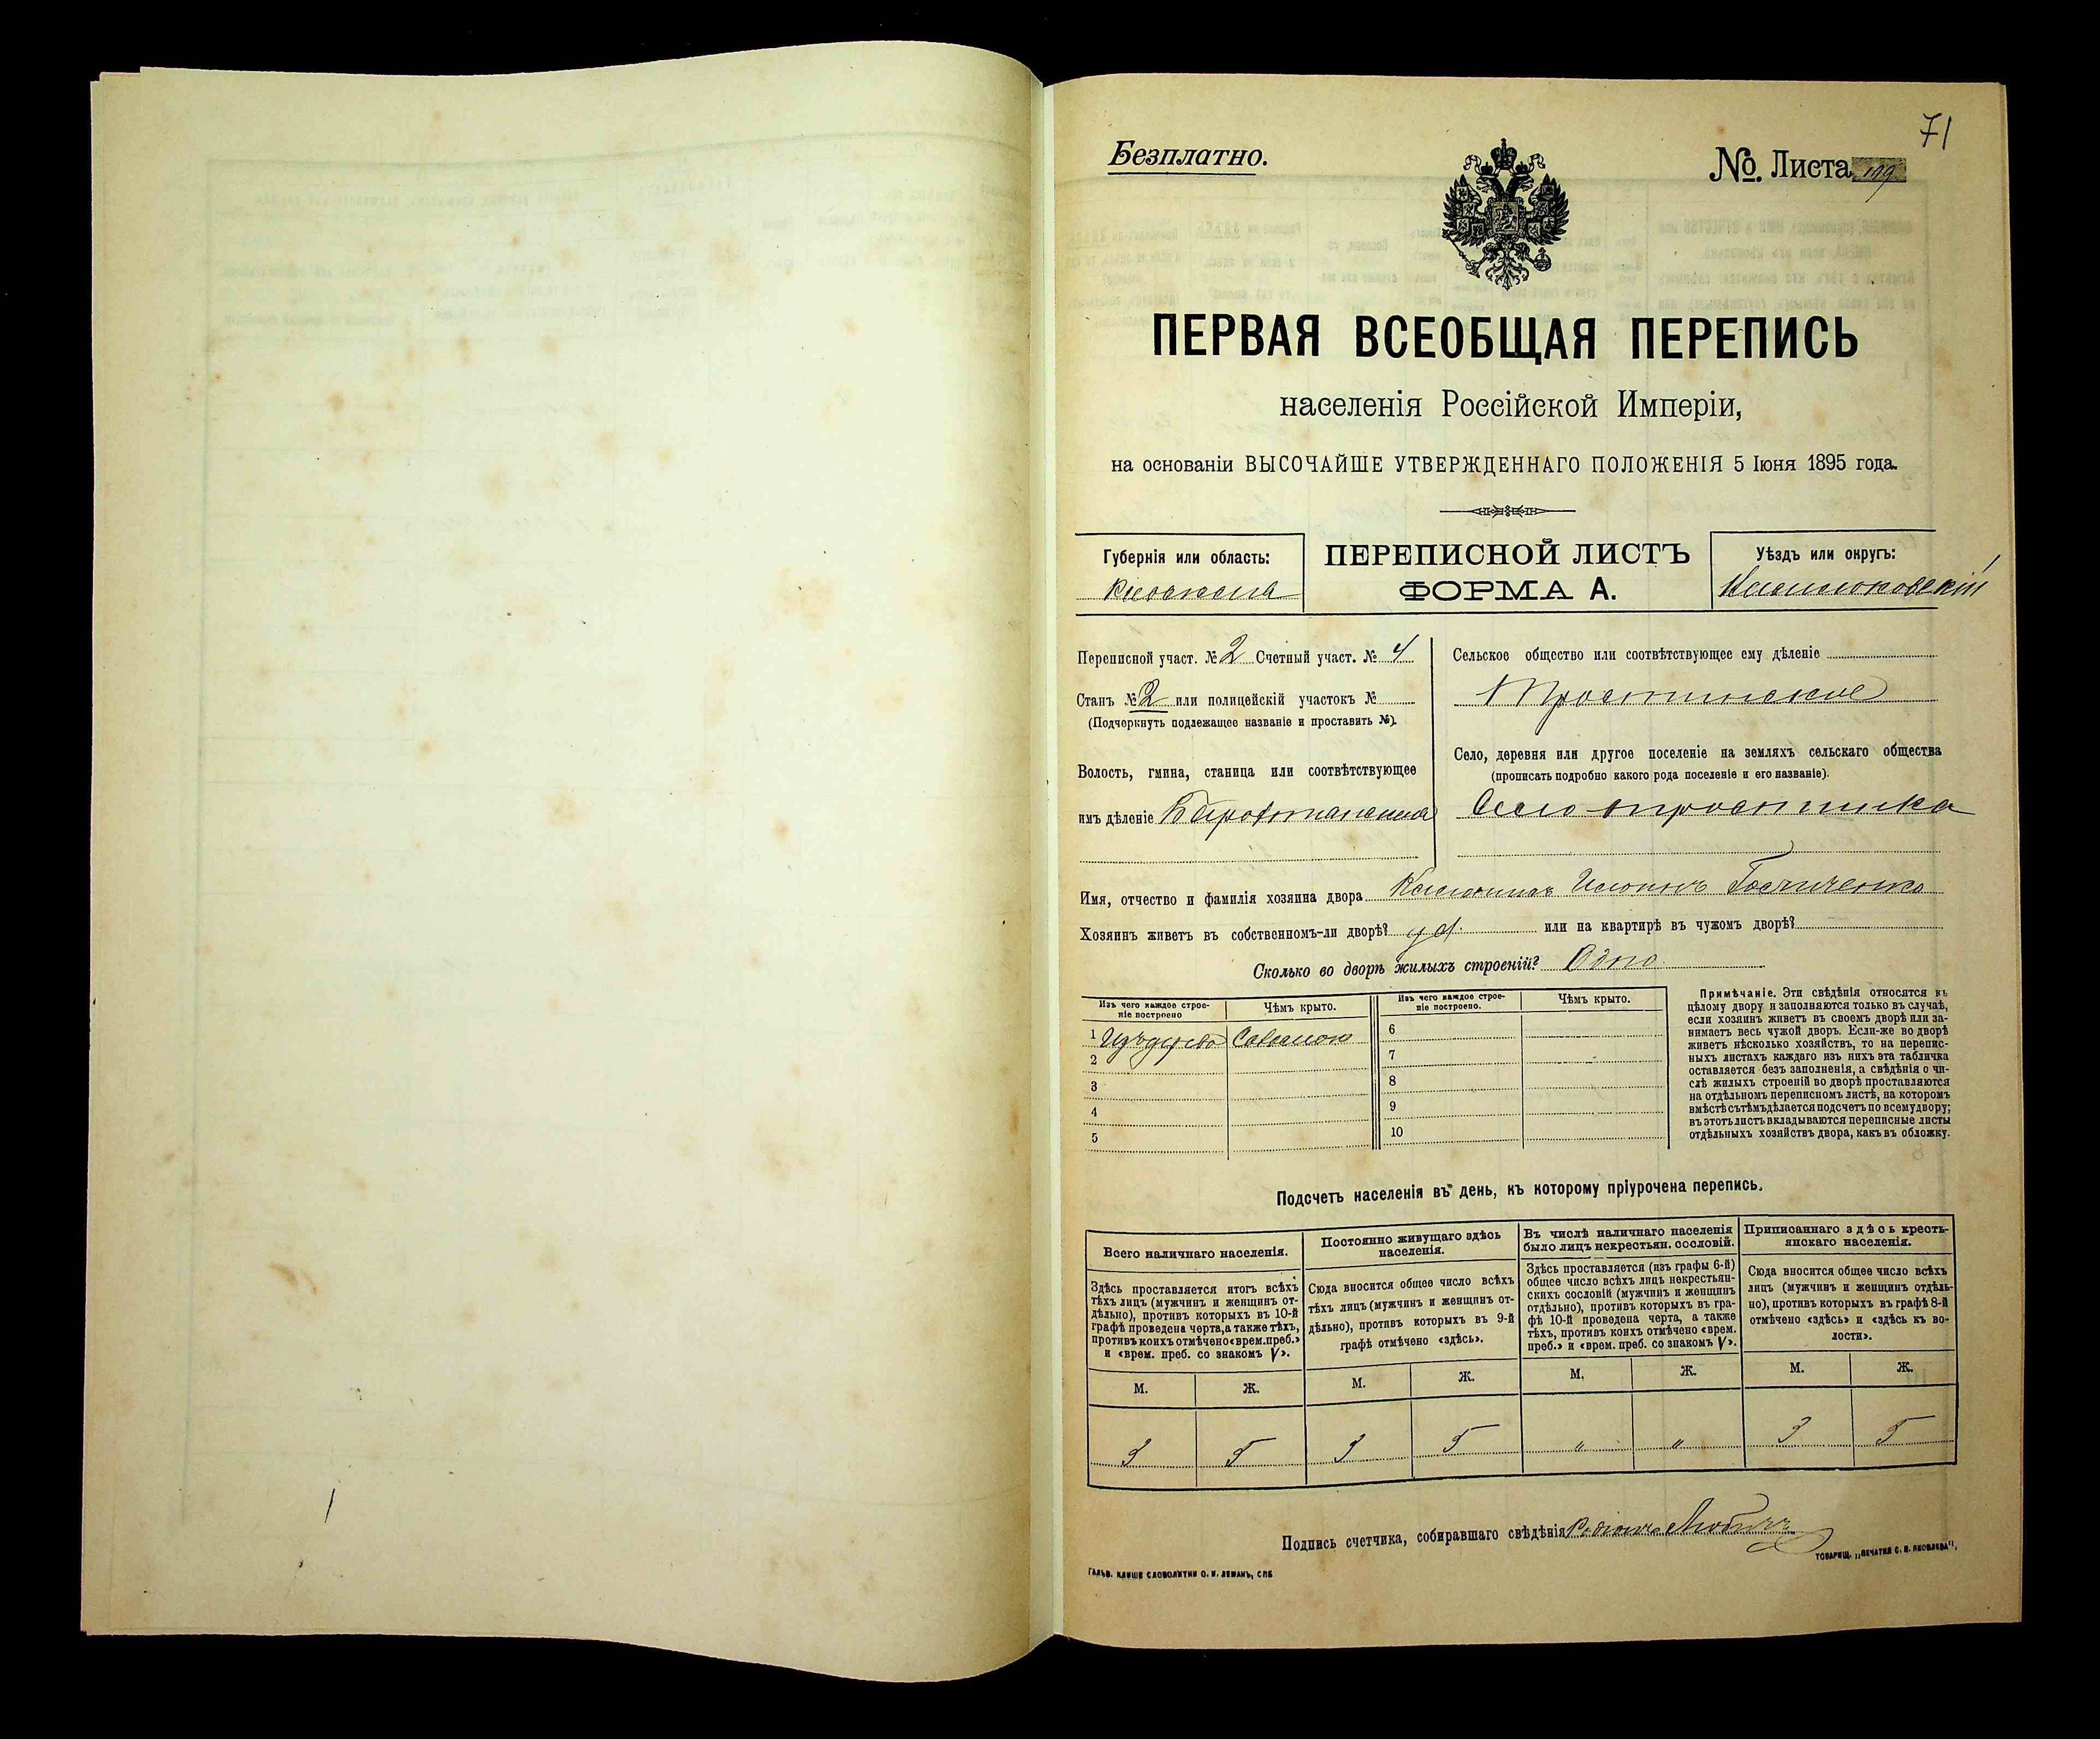 71
Безплатно.
№. Листа 109
ПЕРВАЯ ВСЕОБЩАЯ ПЕРЕПИСЬ
населенія Россійской Имперіи,
на основаніи ВЫСОЧАЙШЕ УТВЕРЖДЕННАГО ПОЛОЖЕНІЯ 5 Іюня 1895 года.
Губернія или область:
Кіевская
ПЕРЕПИСНОЙ ЛИСТЪ
ФОРМА А.
Уѣздъ или округъ:
Переписной участ. № 2 Счетный участ. № 4
Станъ № 2 или полицейскій участокъ №
(Подчеркнуть подлежащее названіе и проставить №).
Волость, гмина, станица или соотвѣтствующее
имъ дѣленіе
Сельское общество или соотвѣтствующее ему дѣленіе
Тростинское
Село, деревня или другое поселеніе на земляхъ сельскаго общества
(прописать подробно какого рода поселеніе и его названіе).
Село Тростинка
Имя, отчество и фамилія хозяина двора
Хозяинъ живетъ въ собственномъ-ли дворѣ? да. или на квартирѣ въ чужомъ дворѣ?
Сколько во дворѣ жилыхъ строеній? Одно
Изъ чего каждое строе-
ніе построено
Чѣмъ крыто.
Изъ чего каждое строе-
ніе построено.
Чѣмъ крыто.
1 Соломою
2
3
4
5
6
7
8
9
10
Примѣчаніе. Эти свѣдѣнія относятся къ
цѣлому двору и заполняются только въ случаѣ,
если хозяинъ живетъ въ своемъ дворѣ или за-
нимаетъ весь чужой дворъ. Если-же во дворѣ
живетъ нѣсколько хозяйствъ, то на перепис-
ныхъ листахъ каждаго изъ нихъ эта табличка
оставляется безъ заполненія, а свѣдѣнія о чи-
слѣ жилыхъ строеній во дворѣ проставляются
на отдѣльномъ переписномъ листѣ, на которомъ
вмѣстѣ съ тѣмъ дѣлается подсчетъ по всему двору;
въ этотъ листъ вкладываются переписные листы
отдѣльныхъ хозяйствъ двора, какъ въ обложку.
Подсчетъ населенія въ день, къ которому пріурочена перепись.
Всего наличнаго населенія.
Здѣсь проставляется итогъ всѣхъ
тѣхъ лицъ (мужчинъ и женщинъ от-
дѣльно), противъ которыхъ въ 10-й
графѣ проведена черта, а также тѣхъ,
противъ коихъ отмѣчено «врем. преб.»
и «врем. преб. со знакомъ V».
М. Ж.
3 5
Постоянно живущаго здѣсь
населенія.
Сюда вносится общее число всѣхъ
тѣхъ лицъ (мужчинъ и женщинъ от-
дѣльно), противъ которыхъ въ 9-й
графѣ отмѣчено «здѣсь».
М. Ж.
3 5
Въ числѣ наличнаго населенія
было лицъ некрестьян. сословій.
Здѣсь проставляется (изъ графы 6-й)
общее число всѣхъ лицъ некрестьян-
скихъ сословій (мужчинъ и женщинъ
отдѣльно), противъ которыхъ въ гра-
фѣ 10-й проведена черта, а также
тѣхъ, противъ коихъ отмѣчено «врем.
преб.» и «врем. преб. со знакомъ V».
М. Ж.
" "
Приписаннаго здѣсь кресть-
янскаго населенія.
Сюда вносится общее число всѣхъ
лицъ (мужчинъ и женщинъ отдѣль-
но), противъ которыхъ въ графѣ 8-й
отмѣчено «здѣсь» и «здѣсь къ во-
лости».
М. Ж.
3 5
Подпись счетчика, собиравшаго свѣдѣнія
ГАЛЬВ. КЛИШЕ СЛОВОЛИТНИ О. И. ЛЕМАНЪ, СПБ
ТОВАРИЩ. „ПЕЧАТНЯ С. П. ЯКОВЛЕВА".